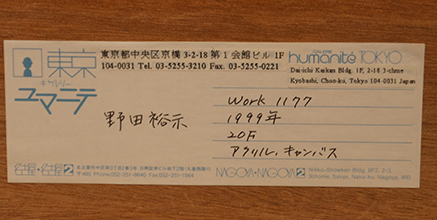 東京
ギャルリー
ユマニテ
東京都中央区京橋 3-2-18 第1会館ビル 1F
104-0031 Tel. 03-5255-3210 Fax.03-5255-0221
humanité TOKYO
Dai-ichi Kaikan Bldg. 1F, 3-2-18
Kyobashi, Chuo-ku, Tokyo 104-0031 Japan
野田裕示
Work 1177
1999年
20F
アクリル、キャンバス
名古屋・名古屋2
NAGOYA・NAGOYA2